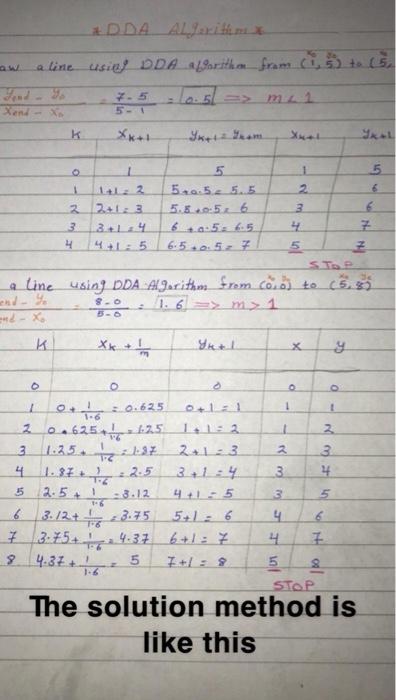 * DDA Algorithm *
aw a line using DDA algorithm from (1,5) to (5,
x0 y0
Yend - Y0 / Xend - X0 = 7-5 / 5-1 = 0.5 => m<1
K Xk+1 Yk+1 = Yk+m Xk+1 Yk+1
0 1 5 1 5
1 1+1=2 5+0.5=5.5 2 6
2 2+1=3 5.5+0.5=6 3 6
3 3+1=4 6+0.5=6.5 4 7
4 4+1=5 6.5+0.5=7 5 7
STOP
a line using DDA Algorithm from (0,0) to (5,8)
end - Y0 / end - X0 = 8-0 / 5-0 = 1.6 => m>1
K Xk + 1/m Yk+1 x y
0 0 0 0 0
1 0+1/1.6=0.625 0+1=1 1 1
2 0.625+1/1.6=1.25 1+1=2 1 2
3 1.25+1/1.6=1.87 2+1=3 2 3
4 1.87+1/1.6=2.5 3+1=4 3 4
5 2.5+1/1.6=3.12 4+1=5 3 5
6 3.12+1/1.6=3.75 5+1=6 4 6
7 3.75+1/1.6=4.37 6+1=7 4 7
8 4.37+1/1.6=5 7+1=8 5 8
STOP
The solution method is
like this